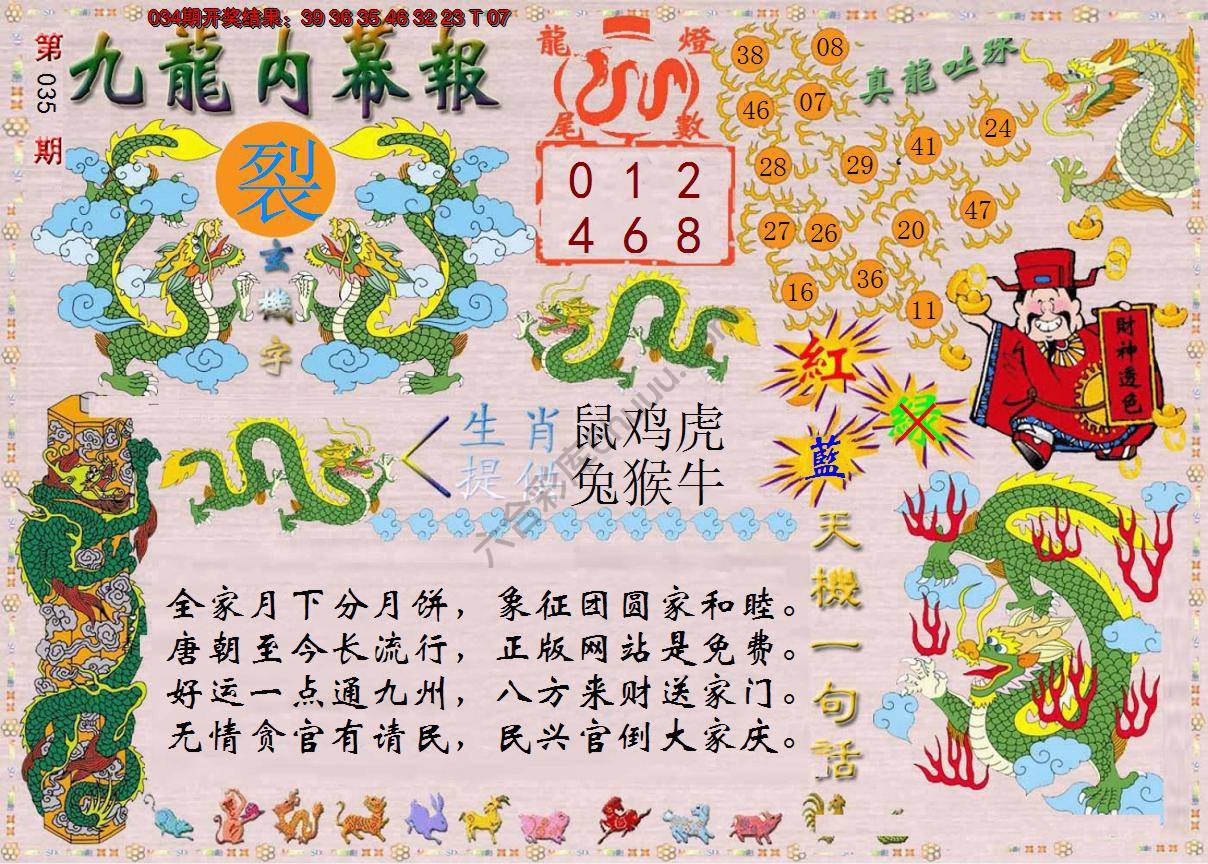 034期开奖结果：39 36 35 46 32 23 T 07
第035期
九龍内幕報
裂
玄機字
龍燈
尾數
0 1 2
4 6 8
真龍吐珠
38 08
46 07
28 29 41 24
27 26 20 47
16 36 11
財神透色
紅
绿
藍
生肖 鼠鸡虎
提供 兔猴牛
天機一句話
全家月下分月饼，象征团圆家和睦。
唐朝至今长流行，正版网站是免费。
好运一点通九州，八方来财送家门。
无情贪官有请民，民兴官倒大家庆。